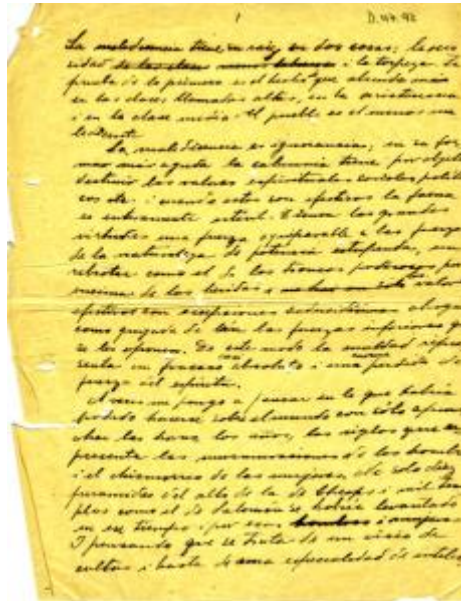 1 D. 47. 92
La maledicencia tiene su raíz en dos cosas; la ocio
sidad de las clases menos laboran i la torpeza. La
prueba de lo primero es el hecho que abunda más
en las clases llamadas altas, en la aristocracia
i en la clase media. El pueblo es el menos ma
ledicente
La maledicencia es ignorancia; en su for
ma más aguda la calumnia tiene por objeto
destruir los valores espirituales sociales, políti
cos etc. i cuando estos son efectivos la faena
es enteramente estéril. Tienen las grandes
virtudes una fuerza equiparable a las fuerzas
de la naturaleza de potencia estupenda, un
rebrotar como el de los troncos poderosos por
encima de las heridas valor
efectivos con excepciones ahoga
como de las fuerzas inferiores q
se les oponen. De este modo la maldad repre
senta un fracaso absoluto i una perdida de
fuerza del espíritu.
A veces me pongo a pensar en lo que habría
podido hacerse sobre el mundo con sólo aprove
char las horas los años, los siglos que re
presenta las murmuraciones de los hombres
i el chismorreo de las mujeres. No solo diez
piramides del alto de la de Cheops i mil tem
plos como el de Salomón se habría levantado
en ese tiempo i por esos hombres i mujeres
I pensando que se trata de un vicio de
cultos i hasta de una especialidad de